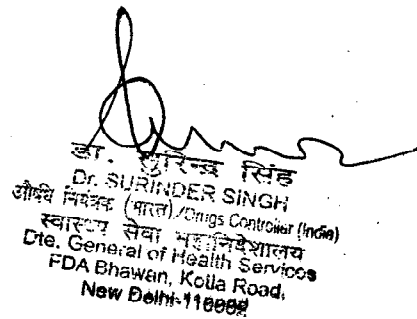 डा. सुरिन्द्र सिंह
Dr. SURINDER SINGH
औषधि नियंत्रक (भारत)/Drugs Controller (India)
स्वास्थ्य सेवा महानिदेशालय
Dte. General of Health Services
FDA Bhawan, Kotla Road,
New Delhi-110002